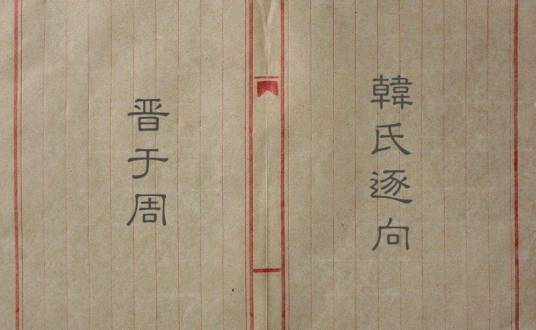 韓氏逐向
晋于周